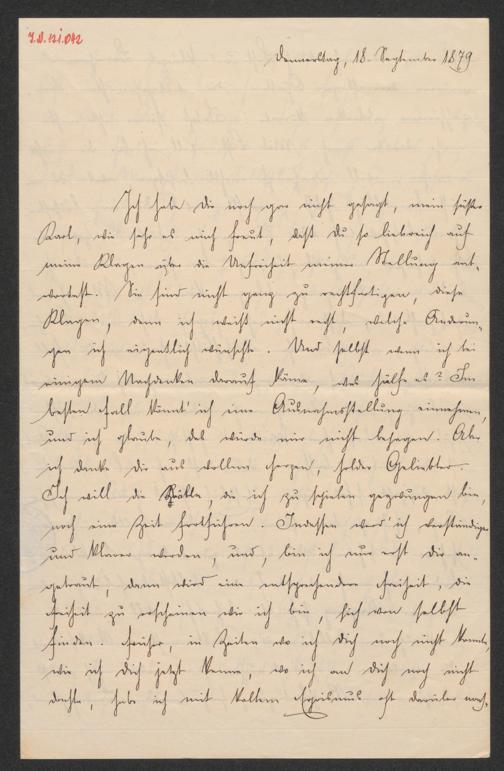 J.N. 121.042
Donnerstag, 18. September 1879
Ich habe Dir noch gar nicht gesagt, mein süßer
Karl, wie sehr es mich freut, daß Du so liebreich auf
meine Klagen über die Unfreiheit meiner Stellung ant-
wortest. Sie sind nicht ganz zu rechtfertigen, diese
Klagen, denn ich weiß nicht recht, welche Änderun-
gen ich eigentlich wünschte. Und selbst wenn ich bei
einigem Nachdenken darauf käme, was hülfe es? Im
besten Fall könnt' ich eine Ausnahmsstellung einnehmen,
und ich glaube, das würde mir nicht behagen. Aber
ich danke Dir aus vollem Herzen, holder Geliebter.
Ich will die Rolle, die ich zu spielen gezwungen bin,
noch eine Zeit fortführen. Indessen werd' ich verständiger
und klarer werden, und, bin ich nur erst Dir an-
getraut, dann wird eine entsprechendere Freiheit, die
Freiheit zu erscheinen wie ich bin, sich von selbst
finden. Früher, in Zeiten wo ich Dich noch nicht kannte,
wie ich Dich jetzt kenne, wo ich an Dich noch nicht
dachte, habe ich mit kaltem Egoismus oft darüber nach-